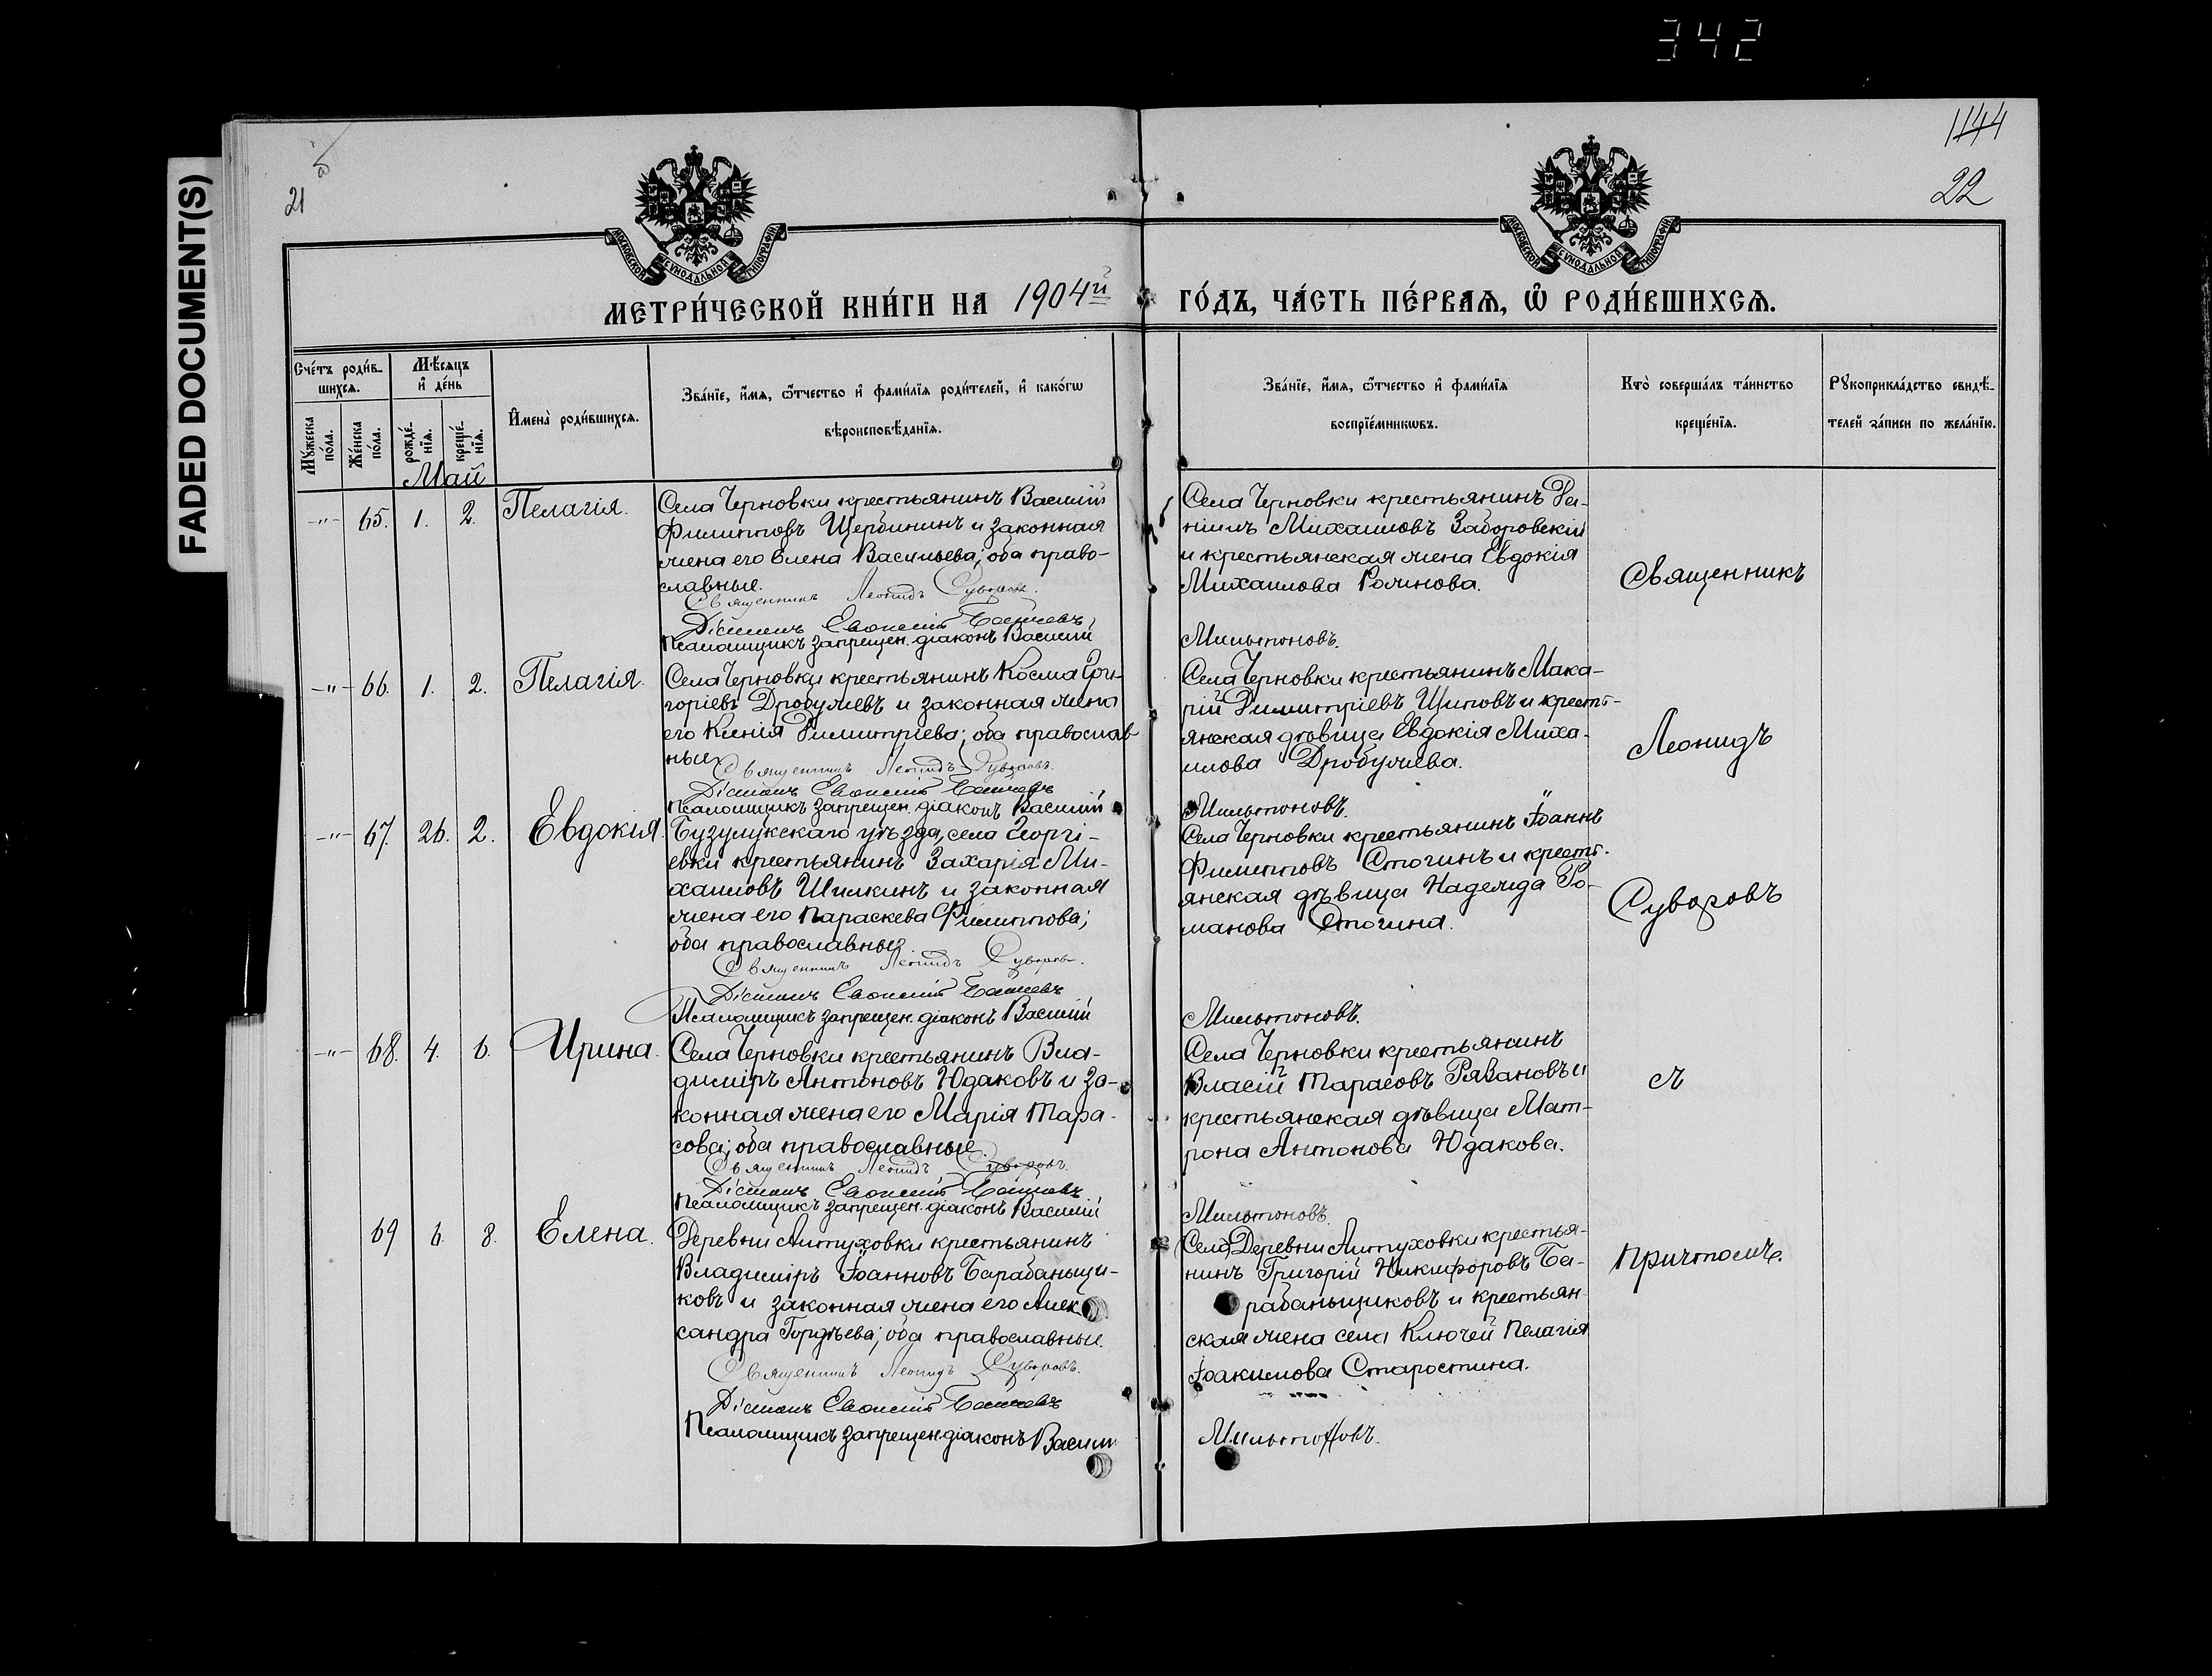 342
FADED DOCUMENT(S)
21
1144
22
МОСКОВСКОЙ СУНОДАЛЬНОЙ ТИПОГРАФІИ
МОСКОВСКОЙ СУНОДАЛЬНОЙ ТИПОГРАФІИ
МЕТРИ́ЧЕСКОЙ КНИ́ГИ НА 1904й ГО́ДЪ, ЧА́СТЬ ПЕ́РВАѦ, Ѿ РОДИ́ВШИХСѦ.
Сче́тъ роди́в-
шихсѧ.
Мꙋ́жеска по́ла.
Же́нска по́ла.
Мѣ́сяцъ
и҆ де́нь
рожде́-
нїѧ.
креще́-
нїѧ.
И҆мена̀ роди́вшихсѧ.
Зва́нїе, и҆́мѧ, ѻ҆́тчество и҆ фами́лїѧ роди́телей, и҆ како́гѡ
вѣроисповѣ́данїѧ.
Зва́нїе, и҆́мѧ, ѻ҆́тчество и҆ фами́лїѧ
воспрїе́мникѡвъ.
Кто̀ соверша́лъ та́инство
креще́нїѧ.
Рꙋкоприкла́дство свидѣ́-
телей за́писи по жела́нїю.
Май
-"- 65. 1. 2. Пелагія.
Села Черновки крестьянинъ Василій
Филипповъ Щербининъ и законная
жена его Елена Васильева; оба право-
славные.
Священникъ Леонидъ Суворовъ.
Діаконъ
Псаломщикъ запрещен. діаконъ Василій
Села Черновки крестьянинъ Да-
ніилъ Михаиловъ Заборовскій
и крестьянская жена Евдокія
Михаилова Логинова.
Мильтоновъ.
Священникъ
-"- 66. 1. 2. Пелагія.
Села Черновки крестьянинъ Косма Гри-
горіевъ Дробужевъ и законная жена
его Ксенія Димитріева; оба православ-
ные.
Священникъ Леонидъ Суворовъ.
Діаконъ
Псаломщикъ запрещен. діаконъ Василій
Села Черновки крестьянинъ Мака-
рій Димитріевъ Щиповъ и кресть-
янская дѣвица Евдокія Миха-
илова Дробужева.
Мильтоновъ.
Леонидъ
-"- 67. 26. 2. Евдокія.
Бузулукскаго уѣзда, села Георгі-
евки крестьянинъ Захарія Ми-
хаиловъ Шишкинъ и законная
жена его Параскева Филиппова;
оба православные.
Священникъ Леонидъ Суворовъ.
Діаконъ
Псаломщикъ запрещен. діаконъ Василій
Села Черновки крестьянинъ Іоаннъ
Филипповъ Стогинъ и кресть-
янская дѣвица Надежда Ро-
манова Стогина.
Мильтоновъ.
Суворовъ
-"- 68. 4. 6. Ирина.
Села Черновки крестьянинъ Вла-
диміръ Антоновъ Юдаковъ и за-
конная жена его Марія Тара-
сова; оба православные.
Священникъ Леонидъ Суворовъ.
Діаконъ
Псаломщикъ запрещен. діаконъ Василій
Села Черновки крестьянинъ
Власій Тарасовъ Рязановъ и
крестьянская дѣвица Мат-
рона Антонова Юдакова.
Мильтоновъ.
съ
69 6. 8. Елена.
Деревни Алтуховки крестьянинъ
Владиміръ Іоанновъ Барабаньщи-
ковъ и законная жена его Алек-
сандра Гордѣева; оба православные.
Священникъ Леонидъ Суворовъ.
Діаконъ
Псаломщикъ запрещен. діаконъ Василій
(Села) Деревни Алтуховки крестья-
нинъ Григорій Никифоровъ Ба-
рабаньщиковъ и крестьян-
ская жена села Ключей Пелагія
Іоакимова Старостина.
Мильтоновъ.
причтомъ.